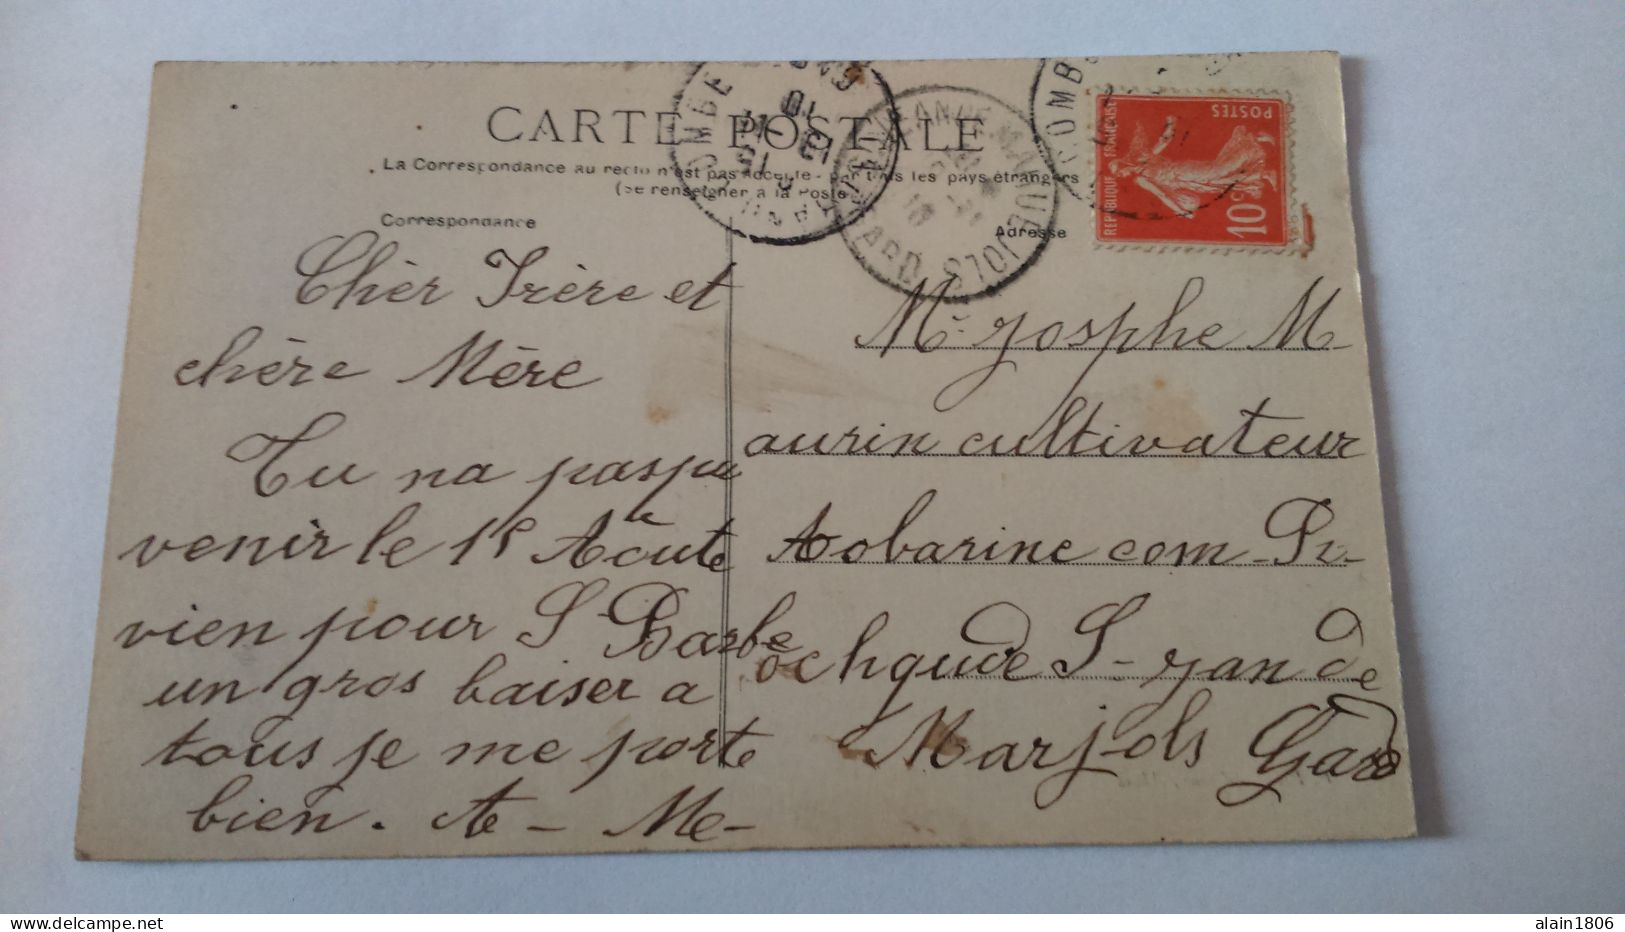 CARTE POSTALE
La Correspondance au recto n'est pas acceptée par tous les pays étrangers
(Se renseigner à la Poste)
Correspondance
Adresse
REPUBLIQUE FRANÇAISE
POSTES
10c
Chèr Frère et
chère Mère
Tu na pas pu
venir le 15 Aoûte
vien pour St Barbe
un gros baiser a
tous je me porte
bien. A - Me -
Mr Josphe M
aurin cultivateur
Aobarine com - Pr
ochqude St - Jan de
Marjols Gard
alain1806